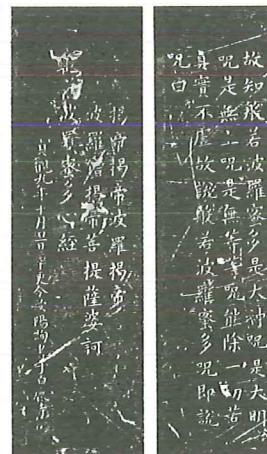 故知般若波羅蜜多是大神呪是大明
呪是無上呪是無等等呪能除一切苦
真實不虛故說般若波羅蜜多呪即說
呪曰
揭帝揭帝波羅揭帝
波羅僧揭帝菩提薩婆訶
般若波羅蜜多心經
貞觀九年十月旦率更令歐陽詢書